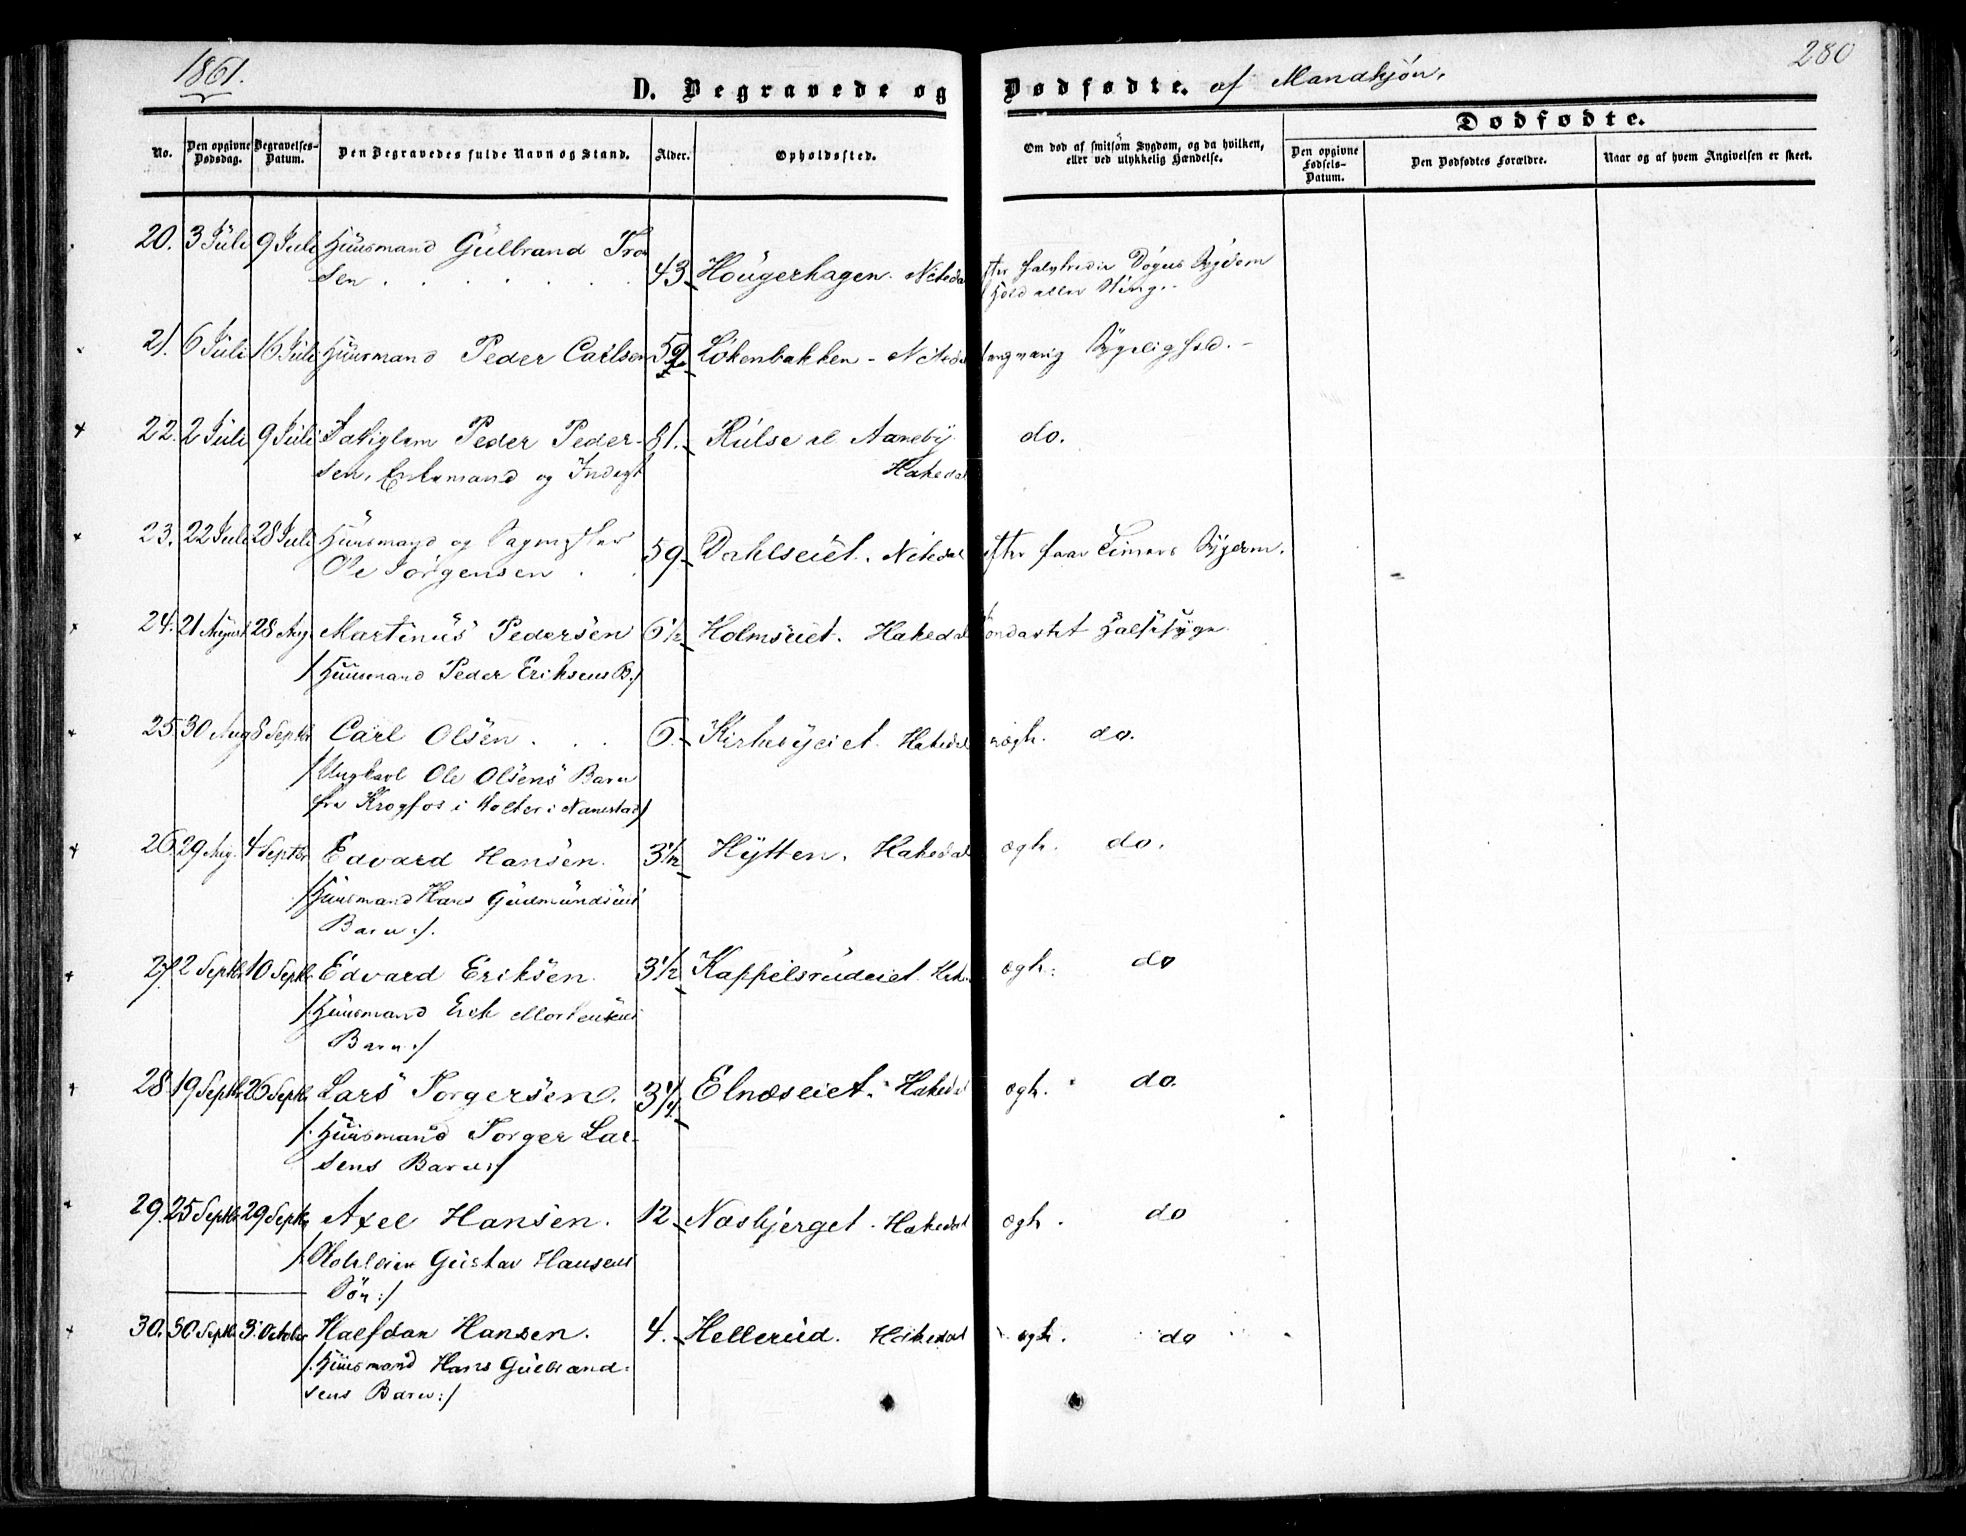 1861.
280
D. Begravede og Dødfødte. af Mandkjön.
Dødfødte.
No.
Den opgivne Dødsdag.
Begravelses-Datum.
Den Begravedes fulde Navn og Stand.
Alder.
Opholdssted.
Om død af smitsom Sygdom, og da hvilken,
eller ved ulykkelig Hændelse.
Den opgivne Fødsels-Datum.
Den Dødfødtes Forældre.
Naar og af hvem Angivelsen er skeet.
20. 3 Juli 9 Juli Huusmand Gulbrand
sen . . . . . . 43 Hougerhagen. Nitedal
Døgns Sygdom
21. 6 Juli 16 Juli Huusmand Peder Carlsen 59 Lökenbakken - Nitedal langvarig Sygelighed. -
22. 2 Juli 9 Juli Peder Peder- 81. Rulse al Aaneby do.
sen, Enkemand og Indsgt Hakedal
23. 22 Juli 28 Juli Huusmand og Sagmester
Ole Jörgensen . . 59 Dahlseiet. Nitedal efter faae Timers Sygdom.
24. 21 August 28 Aug. Martinus Pedersen 6 1/2 Holmseiet. Hakedal ondartet Halssyge.
/: Huusmand Peder Eriksens B:/
25 30 Aug 8 Septbr Carl Olsen . . . 6. Kirkebyeiet. Hakedal ægh. do.
/: Ungkarl Ole Olsens Barn
fra Krogfos i Holter i Nannestad:/
26. 29 Aug. 4 Septbr Edvard Hansen. 3 1/2 Hytten. Hakedal ægh. do.
/: Huusmand Hans Gudmundsens
Barn:/.
27. 2 Septbr 10 Septbr Edvard Eriksen. 3 1/2 Kappelsrudeiet. Hak. ægh: do
/: Huusmand Erik Mortensens
Barn:/
28 19 Septbr 26 Septbr Lars Torgersen. 3 1/4 Elnæseiet. Hakedal ægh. do.
/: Huusmand Torger Lar-
sens Barn:/
29. 25 Septbr 29 Septbr Axel Hansen. 12 Næsbjerget. Hakedal ægh. do
/: Gustav Hansens
Sön:/
30. 30 Septbr 3 October Halfdan Hansen. 4. Hellerud. Hakedal ægh. do
/: Huusmand Hans Gulbrand-
sens Barn:/